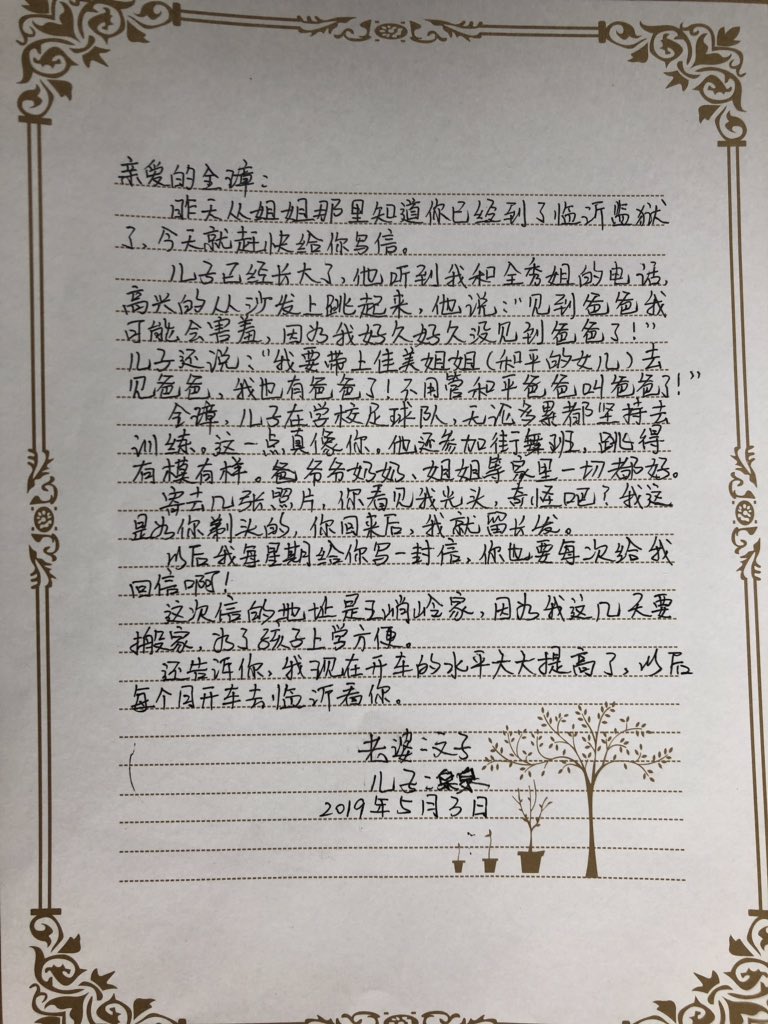 亲爱的全璋：
昨天从姐姐那里知道你已经到了临沂监狱
了，今天就赶快给你写信。
儿子已经长大了，他听到我和全秀姐的电话，
高兴的从沙发上跳起来，他说："见到爸爸我
可能会害羞，因为我好久好久没见到爸爸了！"
儿子还说："我要带上佳美姐姐（和平的女儿）去
见爸爸、我也有爸爸了！不用管和平爸爸叫爸爸了！"
全璋，儿子在学校足球队，无论多累都坚持去
训练。这一点真像你。他还参加街舞班，跳得
有模有样。爸爷爷奶奶、姐姐等家里一切都好。
寄去几张照片，你看见我光头，奇怪吧？我这
是为你剃头的，你回来后，我就留长发。
以后我每星期给你写一封信，你也要每次给我
回信啊！
这次信的地址是王峭岭家，因为我这几天要
搬家，为了孩子上学方便。
还告诉你，我现在开车的水平大大提高了，以后
每个月开车去临沂看你。
老婆：文子
儿子：泉泉
2019年5月3日